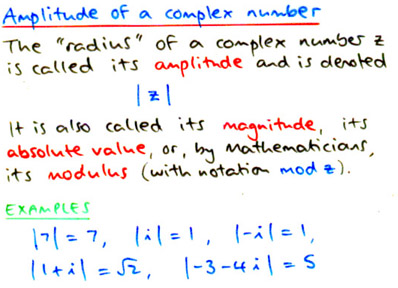 Amplitude of a complex number
The "radius" of a complex number z
is called its amplitude and is denoted
|z|
It is also called its magnitude, its
absolute value, or, by mathematicians,
its modulus (with notation mod z).
EXAMPLES
|7| = 7, |i| = 1, |-i| = 1,
|1+i| = √2, |-3-4i| = 5